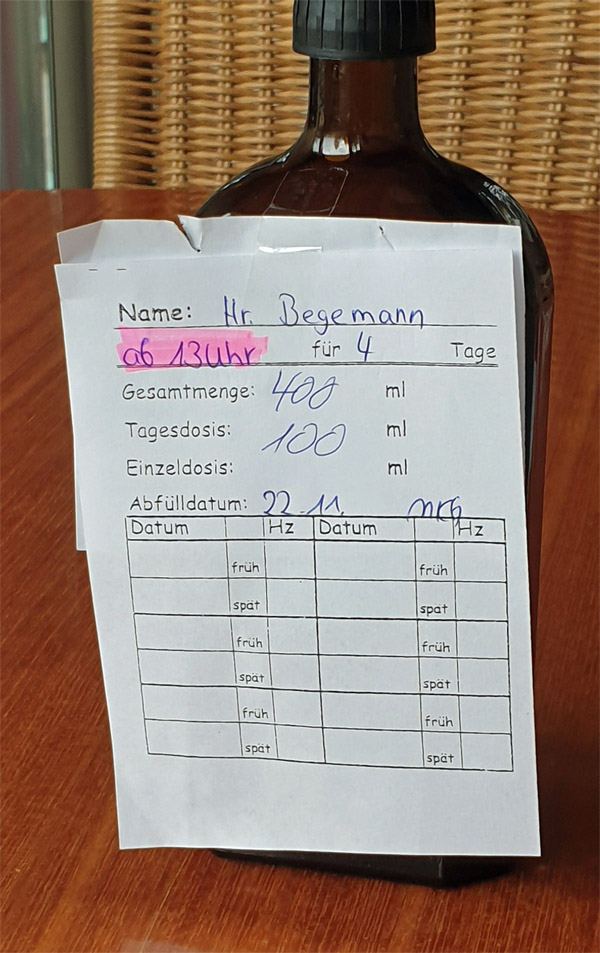 Name: Hr. Begemann
ab 13 Uhr für 4 Tage
Gesamtmenge: 400 ml
Tagesdosis: 100 ml
Einzeldosis: ml
Abfülldatum: 22.11.
Datum Hz Datum Hz
früh früh
spät spät
früh früh
spät spät
früh früh
spät spät